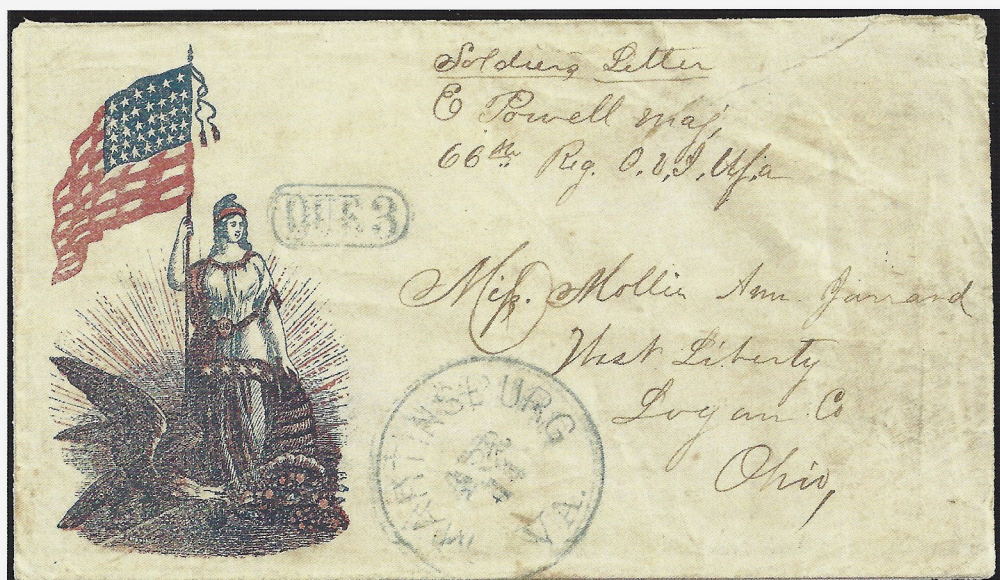 Soldiers Letter
E Powell Maj,
66th Reg. O.V.I. U.S.A
DUE 3
Miss. Mollie Ann Jarrard
West Liberty
Logan Co
Ohio,
MARTINSBURG
VA.